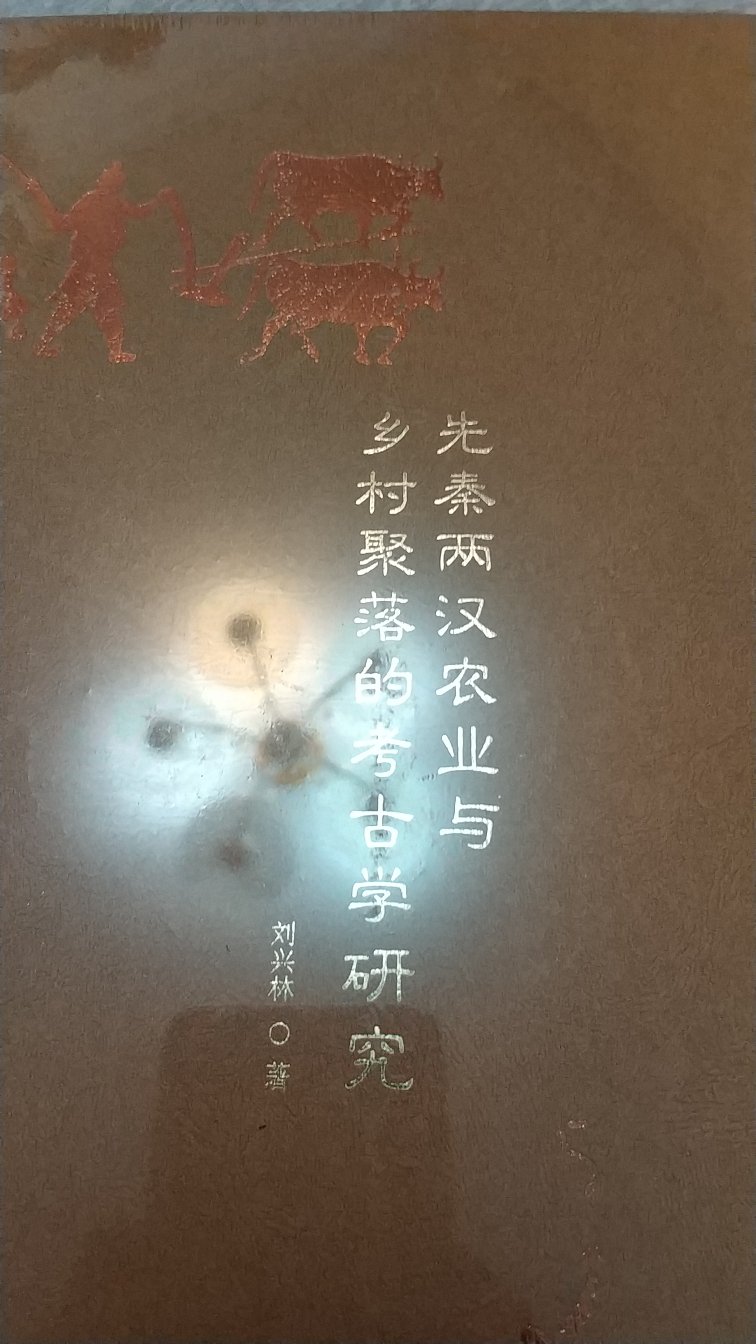 先秦两汉农业与
乡村聚落的考古学研究
刘兴林〇著